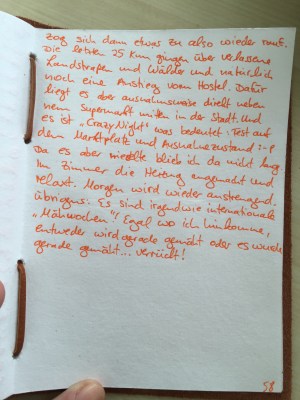 zog sich dann etwas zu also wieder rauf.
Die letzten 25 km gingen über verlassene
Landstraßen und Wälder und natürlich
noch eine Anstieg vom Hostel. Dafür
liegt es aber ausnahmsweise direkt neben
nem Supermarkt mitten in der Stadt. Und
es ist "Crazy Night" was bedeutet: Fest auf
dem Marktplatz und Ausnahmezustand :-P
Da es aber nieselte blieb ich da nicht lang
Im Zimmer die Heizung angemacht und
relaxt. Morgen wird wieder anstrengend.
Übrigens: Es sind irgendwie internationale
"Mähwochen"! Egal wo ich hinkomme,
entweder wird gerade gemäht oder es wurde
gerade gemäht... verrückt!
58